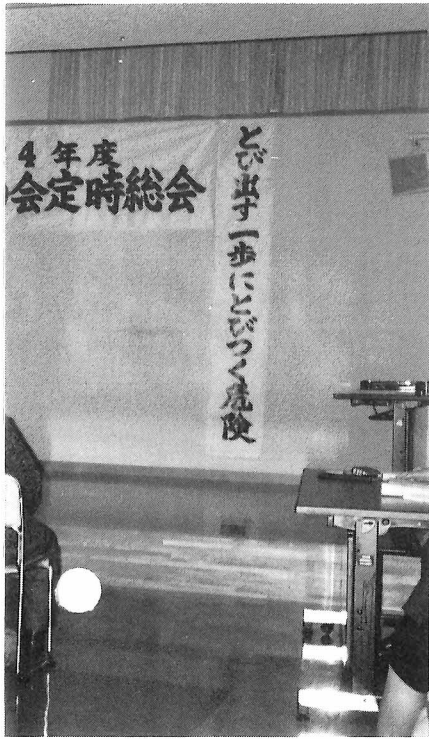 4年度
会定時総会
とび出す一歩にとびつく危険